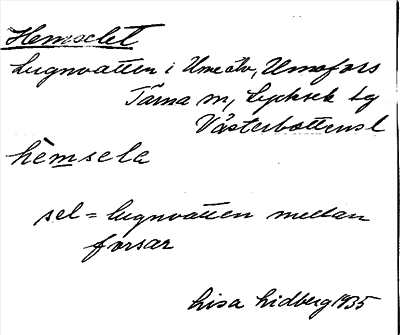 Hemselet
Lugnvatten i Ume älv, Umofors
Tärna sn, Lycksele tg
Västerbottens l
hèmsela
sel = lugnvatten mellan
forsar
Lisa Lidberg 1935